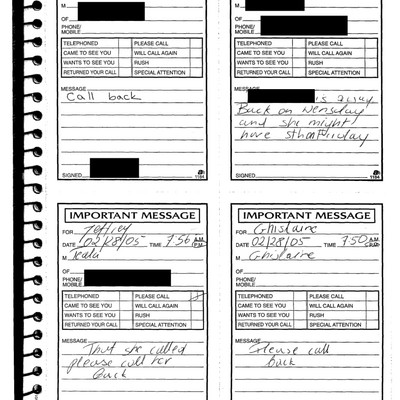 M
OF
PHONE/
MOBILE
TELEPHONED PLEASE CALL
CAME TO SEE YOU WILL CALL AGAIN
WANTS TO SEE YOU RUSH
RETURNED YOUR CALL SPECIAL ATTENTION
MESSAGE
Call back
SIGNED
1184
M
OF
PHONE/
MOBILE
TELEPHONED PLEASE CALL
CAME TO SEE YOU WILL CALL AGAIN
WANTS TO SEE YOU RUSH
RETURNED YOUR CALL SPECIAL ATTENTION
MESSAGE
is away
Back on Wensday
and she might
have
SIGNED
1184
IMPORTANT MESSAGE
FOR Jeffrey
DATE 02/28/05 TIME 7:56 A.M. P.M.
M
OF
PHONE/
MOBILE
TELEPHONED PLEASE CALL
CAME TO SEE YOU WILL CALL AGAIN
WANTS TO SEE YOU RUSH
RETURNED YOUR CALL SPECIAL ATTENTION
MESSAGE
That she called
please call her
Back
IMPORTANT MESSAGE
FOR Ghislaine
DATE 02/28/05 TIME 7:50
M Ghislaine
OF
PHONE/
MOBILE
TELEPHONED PLEASE CALL
CAME TO SEE YOU WILL CALL AGAIN
WANTS TO SEE YOU RUSH
RETURNED YOUR CALL SPECIAL ATTENTION
MESSAGE
Please call
Back